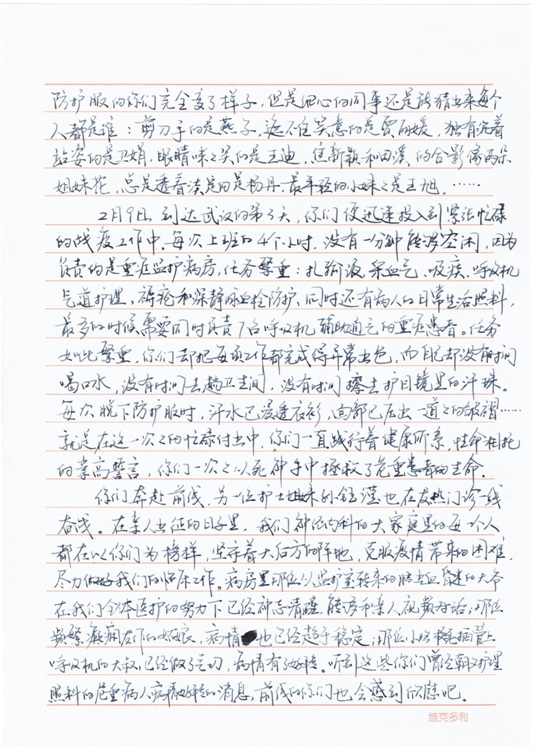 防护服的你们完全变了样子，但是细心的同事还是能猜出来每个
人都是谁：剪刀手的是燕子，掩不住笑意的是贾丽媛，独有沉着
站姿的是卫娟，眼睛眯眯笑的是王迪，伍新颖和田溪的合影像两朵
姐妹花，总是透着淡定的是杨丹，最年轻的小妹妹是王旭。……
2月9日，到达武汉的第3天，你们便迅速投入到紧张忙碌
的战疫工作中。每次上班的4个小时，没有一分钟能够空闲，因为
负责的是重症监护病房，任务繁重：扎输液、采血气、吸痰、呼吸机
气道护理，褥疮和深静脉血栓防护，同时还有病人的日常生活照料，
最多的时候需要同时负责7台呼吸机辅助通气的重症患者。任务
如此繁重，你们却把每项工作都完成得异常出色，而自己却没有时间
喝口水，没有时间去趟卫生间，没有时间擦去护目镜里的汗珠。
每次脱下防护服时，汗水已浸透衣衫，面部已压出一道道的皱褶……
就是在这一次次的忙碌付出中，你们一直践行着健康所系，性命相托
的崇高誓言，你们一次次从死神手中拯救了危重患者的生命。
你们奔赴前线，另一位护士姐妹孙钰滢也在发热门诊一线
奋战。在亲人出征的日子里，我们神经内科的大家庭里的每一个人
都在以你们为榜样，坚守着大后方阵地，克服疫情带来的困难，
尽力做好我们的临床工作。病房里那位从监护室转来的脑出血昏迷的大爷
在我们全体医护的努力下已经神志清醒，能够和亲人视频对话；那位
频繁癫痫发作的姑娘，病情也已经趋于稳定；那位小脑梗插管上
呼吸机的大叔，已经做了气切，病情有好转。听到这些你们曾经朝夕护理
照料的危重病人病情好转的消息，前线的你们也会感到欣慰吧。
维克多利